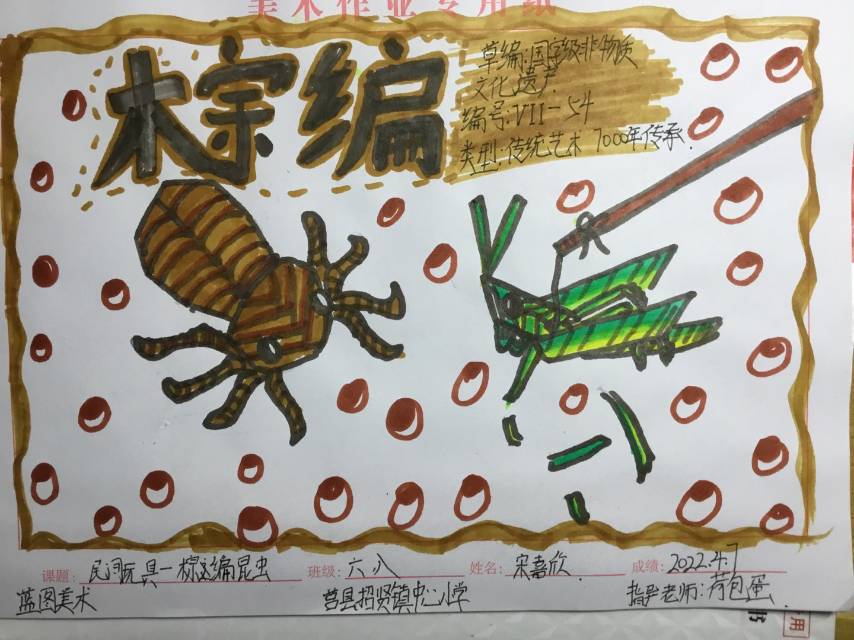 美术作业专用纸
棕编
草编:国家级非物质
文化遗产
编号:VII-54
类型:传统艺术 7000年传承.
课题: 民间玩具一棕编昆虫 班级: 六.八 姓名: 宋嘉欣. 成绩: 2022.4.7
蓝图美术 莒县招贤镇中心小学 指导老师:荷包蛋
用